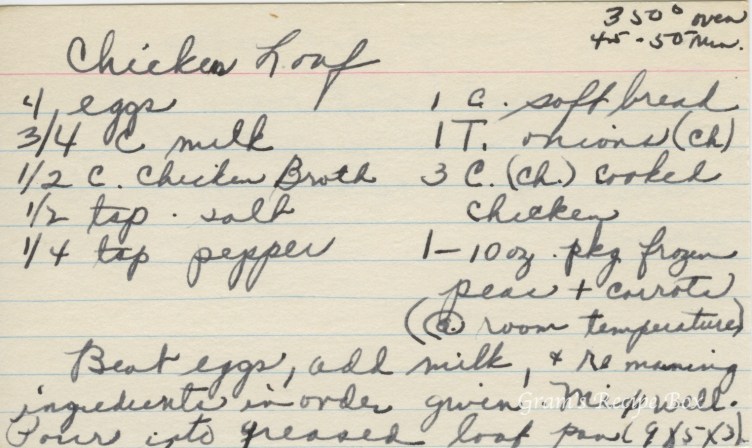 350° oven
45-50 min.
Chicken Loaf
4 eggs
3/4 C milk
1/2 C. Chicken Broth
1/2 tsp. salt
1/4 tsp pepper
1 C. soft bread
1 T. onions (ch)
3 C. (ch.) cooked
chicken
1-10 oz. pkg frozen
peas + carrots
(@ room temperature)
Beat eggs, add milk, + remaining
ingredients in order given. Mix well.
Pour into greased loaf pan (9x5x3)
Gram's Recipe Box